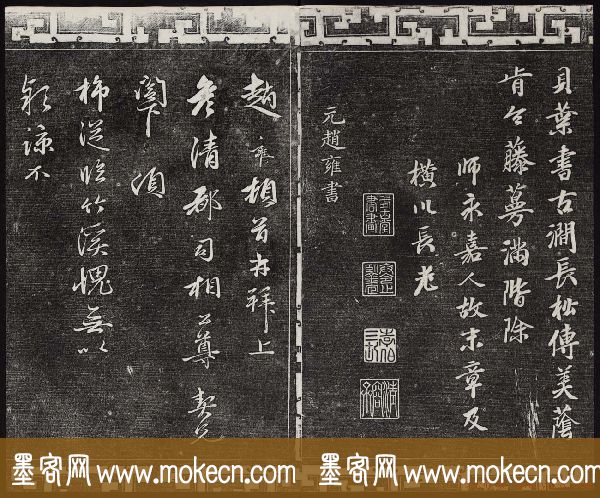 貝葉書古澗長松傳美蔭
肯令藤蔓滿階除
師永嘉人故末章及
橫川長老
元趙雍書
趙雍頓首再拜上
彥清郡司相公尊契兄
閣下須
柿從臨竹溪愧無以
報諒不
墨客网 www.mokecn.com 墨客网 www.mokecn.com